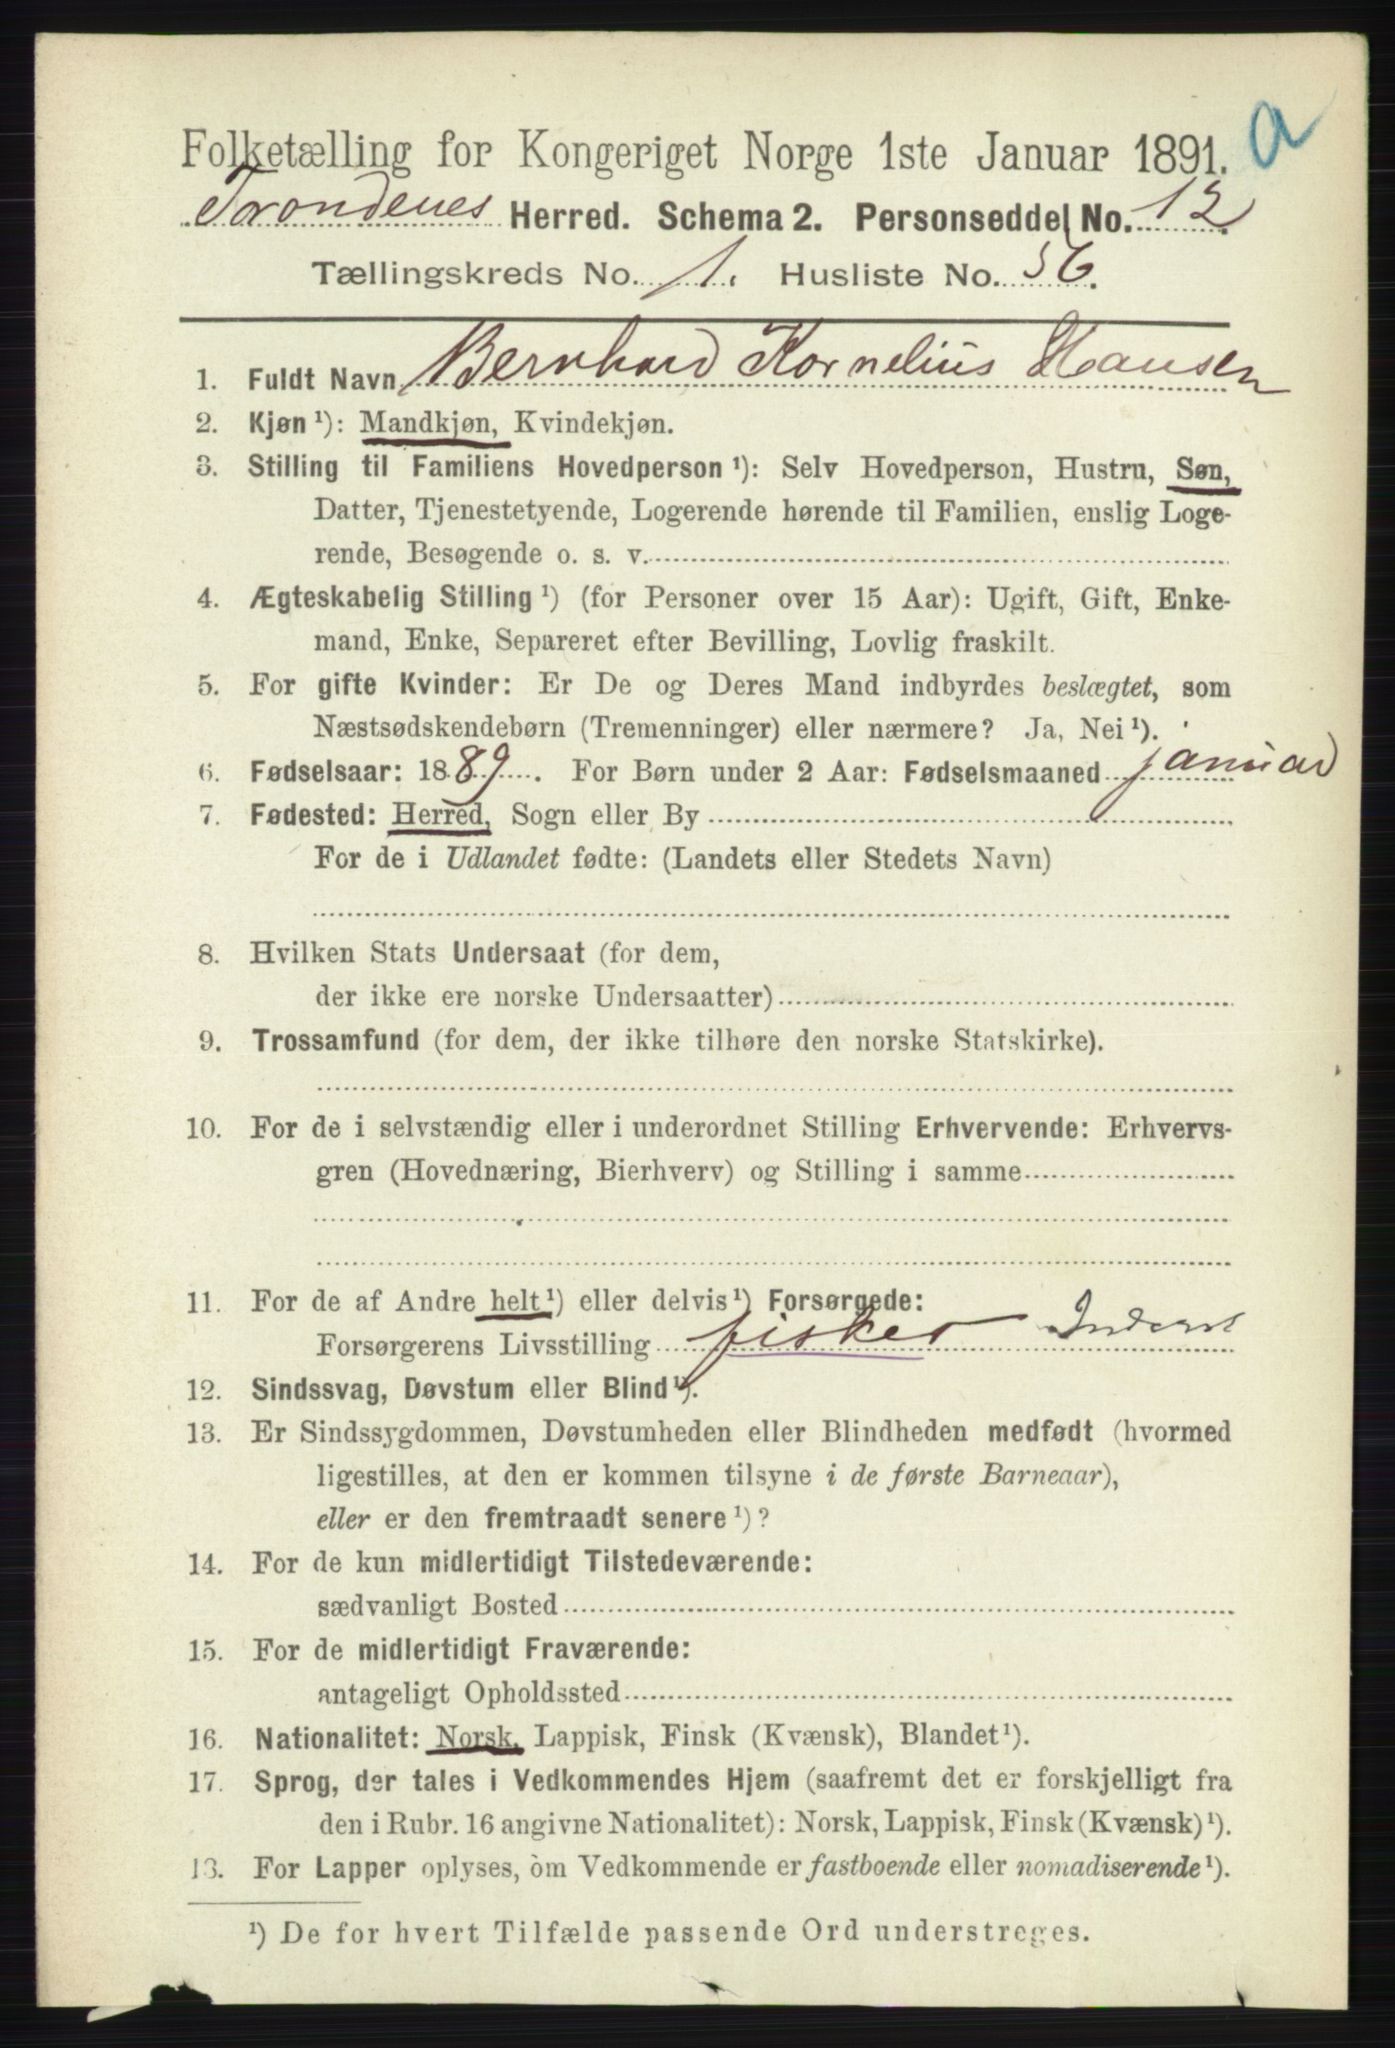 a
Folketælling for Kongeriget Norge 1ste Januar 1891.
Trondenes Herred. Schema 2. Personseddel No. 12
Tællingskreds No. 1. Husliste No. 56.
1. Fuldt Navn Bernhard Kornelius Hansen
2. Kjøn ¹): Mandkjøn, Kvindekjøn.
3. Stilling til Familiens Hovedperson ¹): Selv Hovedperson, Hustru, Søn,
Datter, Tjenestetyende, Logerende hørende til Familien, enslig Loge-
rende, Besøgende o. s. v.
4. Ægteskabelig Stilling ¹) (for Personer over 15 Aar): Ugift, Gift, Enke-
mand, Enke, Separeret efter Bevilling, Lovlig fraskilt.
5. For gifte Kvinder: Er De og Deres Mand indbyrdes beslægtet, som
Næstsødskendebørn (Tremenninger) eller nærmere? Ja, Nei ¹).
6. Fødselsaar: 1889. For Børn under 2 Aar: Fødselsmaaned januar
7. Fødested: Herred, Sogn eller By
For de i Udlandet fødte: (Landets eller Stedets Navn)
8. Hvilken Stats Undersaat (for dem,
der ikke ere norske Undersaatter)
9. Trossamfund (for dem, der ikke tilhøre den norske Statskirke).
10. For de i selvstændig eller i underordnet Stilling Erhvervende: Erhvervs-
gren (Hovednæring, Bierhverv) og Stilling i samme
11. For de af Andre helt ¹) eller delvis ¹) Forsørgede:
Forsørgerens Livsstilling fisker
12. Sindssvag, Døvstum eller Blind ¹).
13. Er Sindssygdommen, Døvstumheden eller Blindheden medfødt (hvormed
ligestilles, at den er kommen tilsyne i de første Barneaar),
eller er den fremtraadt senere ¹)?
14. For de kun midlertidigt Tilstedeværende:
sædvanligt Bosted
15. For de midlertidigt Fraværende:
antageligt Opholdssted
16. Nationalitet: Norsk, Lappisk, Finsk (Kvænsk), Blandet ¹).
17. Sprog, der tales i Vedkommendes Hjem (saafremt det er forskjelligt fra
den i Rubr. 16 angivne Nationalitet): Norsk, Lappisk, Finsk (Kvænsk) ¹).
18. For Lapper oplyses, om Vedkommende er fastboende eller nomadiserende ¹).
¹) De for hvert Tilfælde passende Ord understreges.